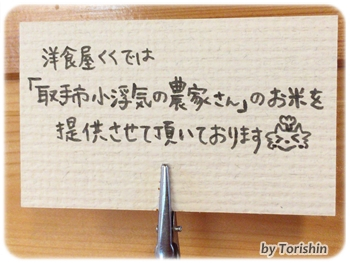 洋食屋くくでは
「取手市小浮気の農家さん」のお米を
提供させて頂いております
by Torishin